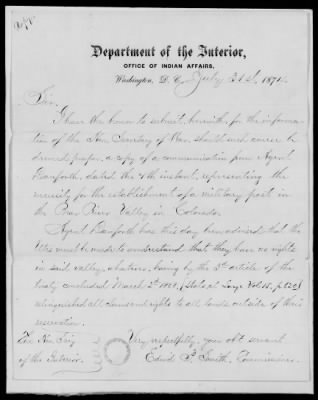 Department of the Interior,
OFFICE OF INDIAN AFFAIRS,
Washington, D. C., July 21st, 1874.
Sir:
I have the honor to submit, herewith, for the informa-
tion of the Hon. Secretary of War, should such course be
deemed proper, a copy of a communication from Agent
Danforth, dated the 4th instant, representing the
necessity for the establishment of a military post in
the Bear River Valley in Colorado.
Agent Danforth has this day been advised that the
Utes must be made to understand that they have no rights
in said valley whatever, having by the 3d article of the
treaty concluded March 2d 1868, (Stats. at Large Vol. 15. p. 620)
relinquished all claims and rights to all lands outside of their
reservation.
The Hon. Sec'y
of the Interior.
Very respectfully, your obt. servant
Edwd P. Smith, Commissioner.